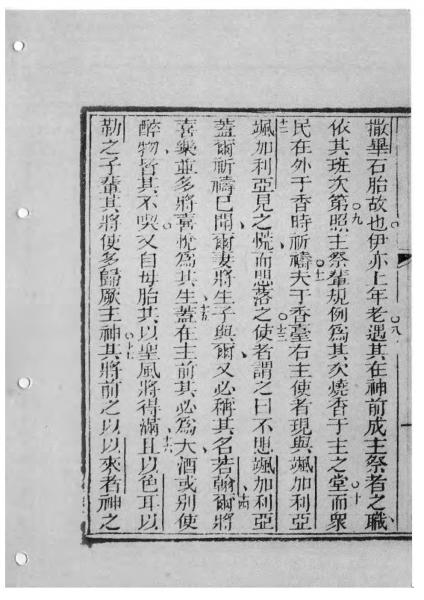 撒畢石胎故也伊亦上年老遇其在神前成主祭者之職
依其班次第照主祭輩規例為其次燒香于主之堂而衆
民在外于香時祈禱夫于香臺右主使者現與颯加利亞
颯加利亞見之慌而思落之使者謂之曰不思颯加利亞
蓋爾祈禱已聞爾妻將生子與爾又必稱其名若翰爾將
喜樂並多將喜悅為其生蓋在主前其必為大酒或別使
醉物皆其不喫又自母胎其以聖風將得滿且以色耳以
勒之子輩其將使多歸厥主神其將前之以以來者神之